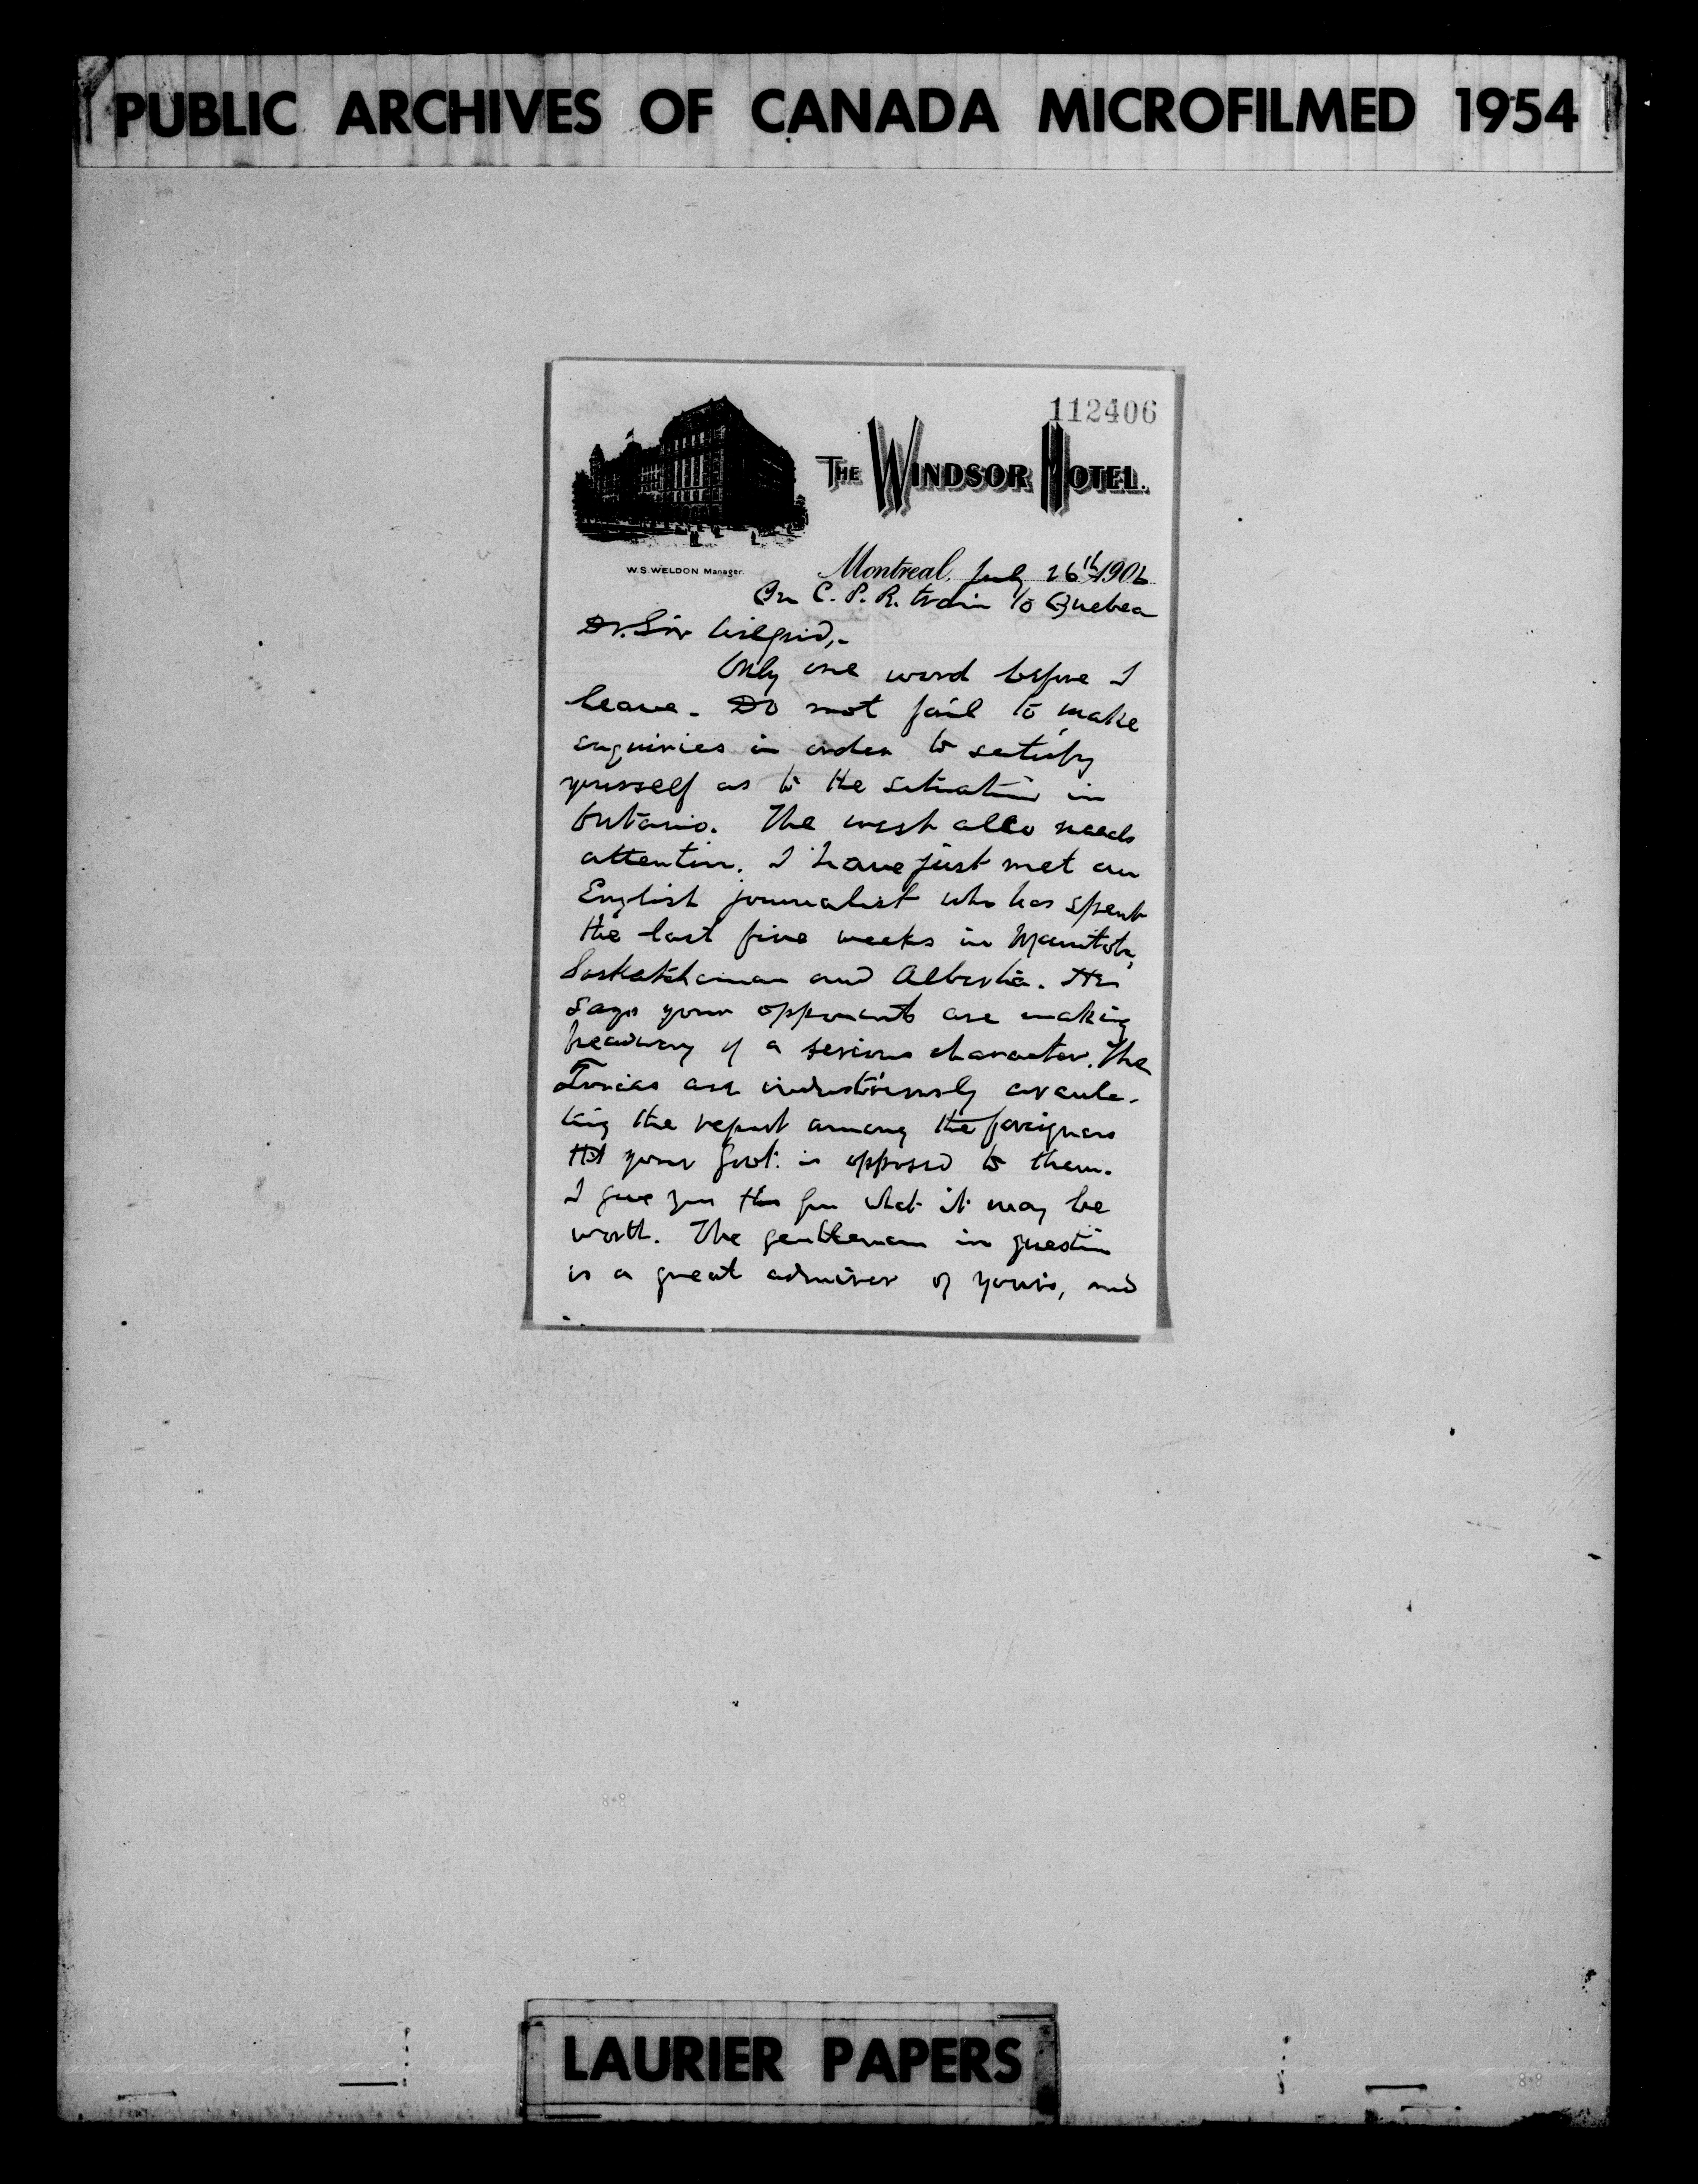 PUBLIC ARCHIVES OF CANADA MICROFILMED 1954
112406
THE WINDSOR HOTEL.
W.S. WELDON Manager.
Montreal, July 26th 1906
On C. P. R. train to Quebec
Dr. Sir Wilfrid,-
Only one word before I
leave. Do not fail to make
enquiries in order to satisfy
yourself as to the situation in
Ontario. The west also needs
attention. I have just met an
English journalist who has spent
the last five weeks in Manitoba,
Saskatchewan and Alberta. He
says your opponents are making
headway of a serious character. The
Tories are industriously circula-
ting the report among the foreigners
tht your Govt. is opposed to them.
I give you this for what it may be
worth. The gentleman in question
is a great admirer of yours, and
LAURIER PAPERS